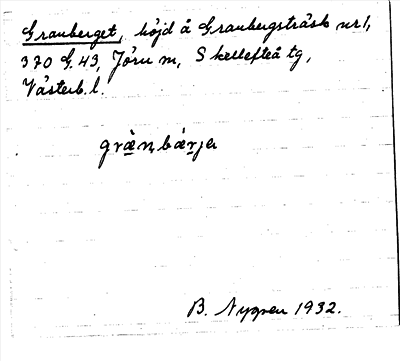 Granberget, höjd å Granbergsträsk nr 1,
370 G. 43, Jörn sn, Skellefteå tg,
Västerb. l.
grànbærjə
B. Nygren 1932.